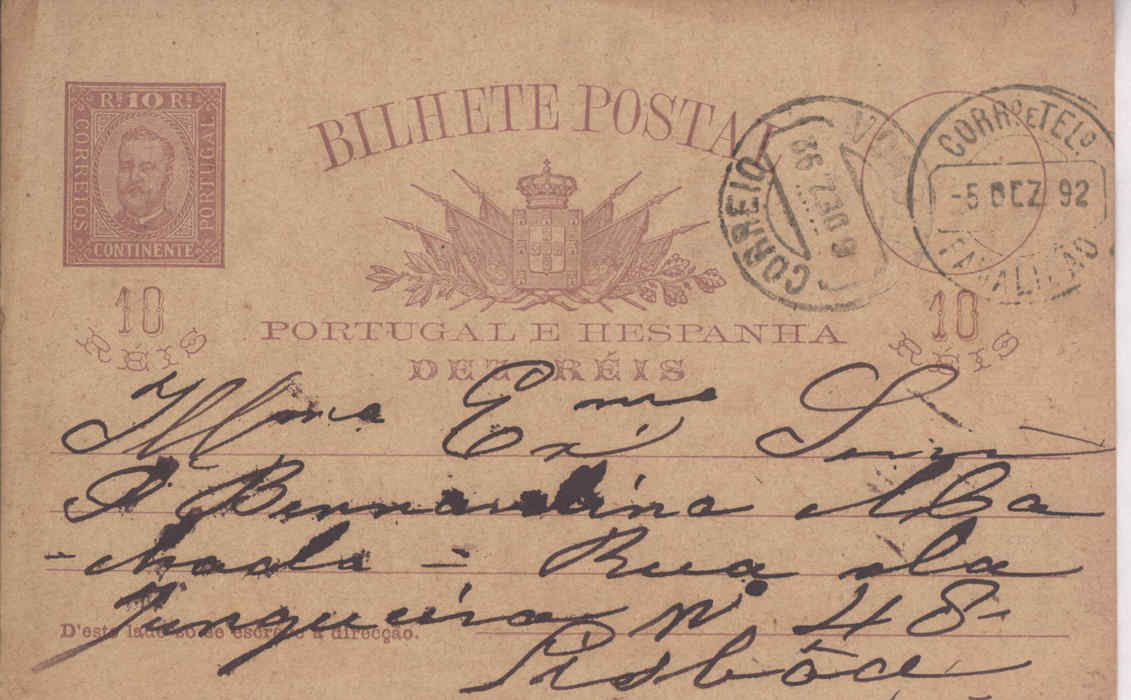 Rˢ 10 Rˢ
CORREIOS
PORTUGAL
CONTINENTE
BILHETE POSTAL
CORREIO
6 DEZ. 92
CORRº E TELº
-5 DEZ 92
FAMALICÃO
10
RÉIS
PORTUGAL E HESPANHA
10
RÉIS
DEZ RÉIS
Illma Exma Snra
D Bernardina Ma
chado - Rua da
Junqueira Nº 48-
D'este lado só se escreve a direcção.
Lisbôa